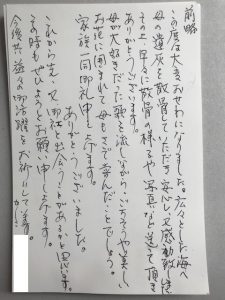 前略
この度は大変おせわになりました。広々とした海へ
母の遺灰を散骨していただき安心し又感動致しました
その上、早々に散骨の様子や写真など送って頂き
ありがとうございます。
母が大好きだった歌を流しながら ごちそうや美しい
お花に囲まれて母もさぞ喜んだことでしょう。
家族一同御礼申し上げます。
ありがとうございました。
これから先、又御社と出会うことがあるかと思います。
その時もぜひよろしくお願い申し上げます。
今後共、益々の御活躍をお祈りしています。
かしこ